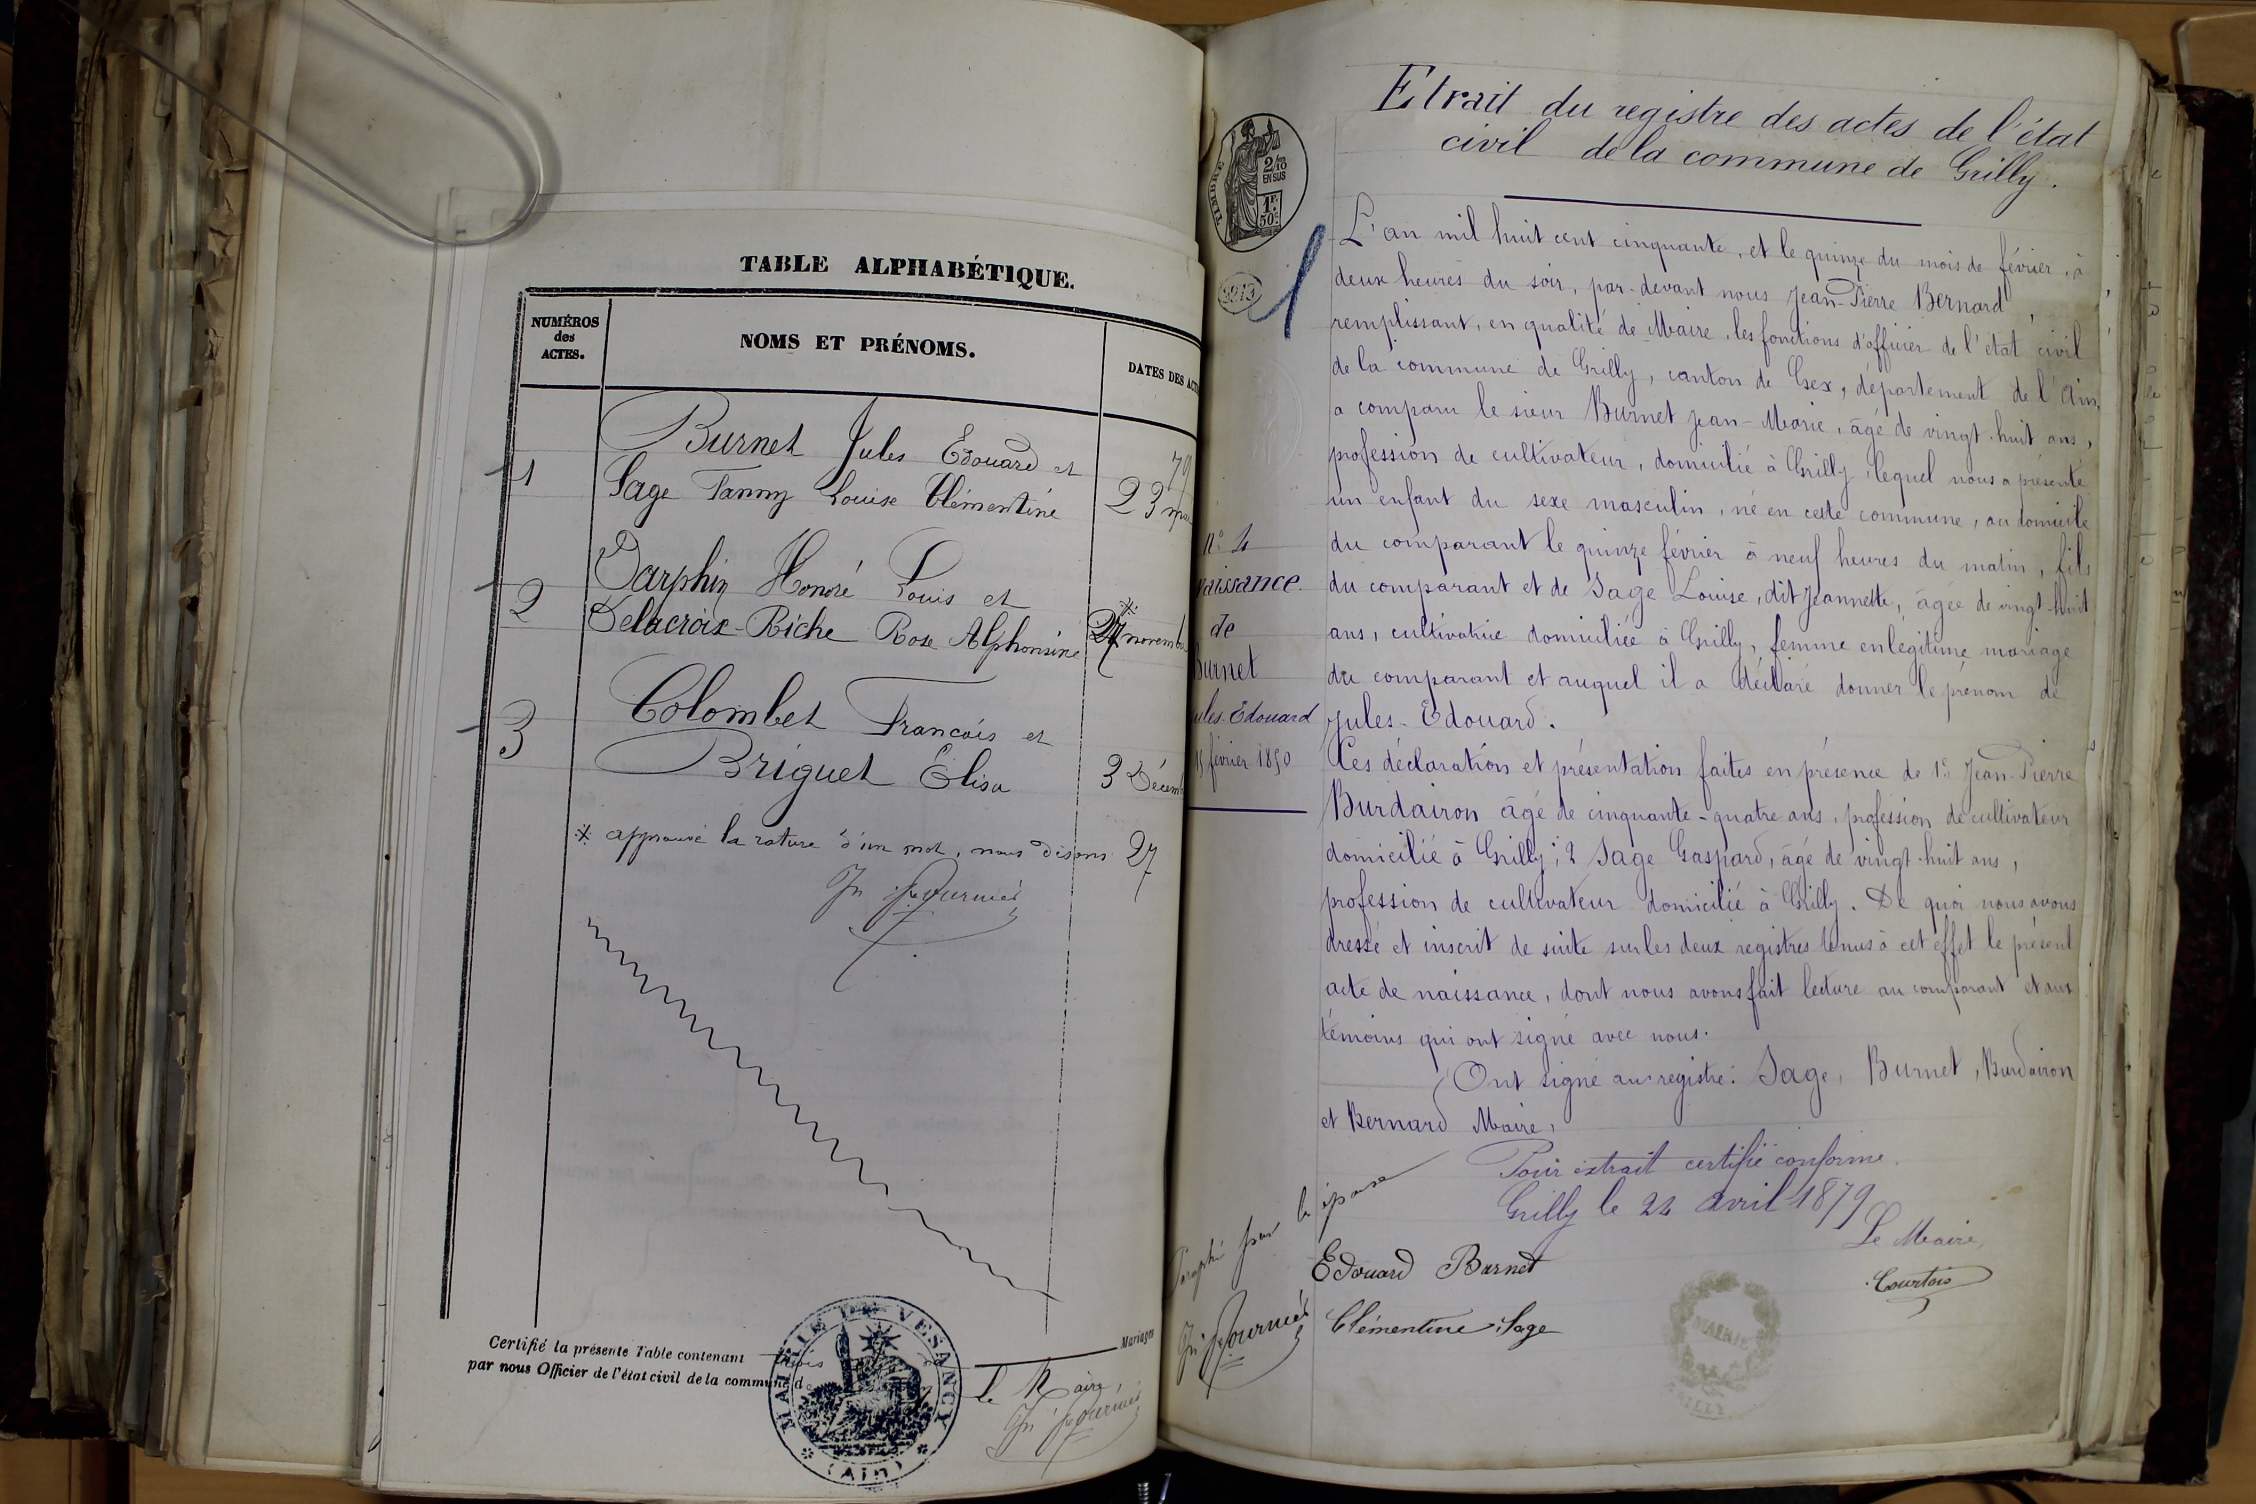 TABLE ALPHABÉTIQUE.
NUMÉROS
des
ACTES.
NOMS ET PRÉNOMS.
DATES DES ACT
Burnet Jules Edouard et
1
Sage Fanny Louise Clémentine
23 mai
Darphin Honoré Louis et
2
Delacroix-Riche Rose Alphonsine
novembre
Colombet François et
3
Briguet Élisa
3 Décemb
※ approuvé la rature d'un mot, nous disons 27
Certifié la présente Table contenant trois
Mariages
par nous Officier de l'état civil de la commune d
le Maire,
MAIRIE DE VESANCY
(Ain)
Etrait du registre des actes de l'état
civil de la commune de Grilly.
TIMBRE
2/10
EN SUS
1F.
50c.
L'an mil huit cent cinquante, et le quinze du mois de février, à
deux heures du soir, par-devant nous Jean-Pierre Bernard,
remplissant, en qualité de Maire, les fonctions d'officier de l'état civil
de la commune de Grilly, canton de Gex, département de l'Ain,
a comparu le sieur Burnet Jean-Marie, âgé de vingt-huit ans,
profession de cultivateur, domicilié à Grilly, lequel nous a présenté
un enfant du sexe masculin, né en cette commune, au domicile
du comparant le quinze février à neuf heures du matin, fils
du comparant et de Sage Louise, dit Jeannette, âgée de vingt-huit
ans, cultivatrice domiciliée à Grilly, femme en légitime mariage
du comparant et auquel il a déclaré donner le prénom de
Jules-Edouard.
n° 4
naissance
de
Burnet
Jules-Edouard
15 février 1850
Ces déclaration et présentation faites en présence de 1° Jean-Pierre
Burdairon âgé de cinquante-quatre ans, profession de cultivateur
domicilié à Grilly; 2 Sage Gaspard, âgé de vingt-huit ans,
profession de cultivateur domicilié à Grilly. De quoi nous avons
dressé et inscrit de suite sur les deux registres tenus à cet effet le présent
acte de naissance, dont nous avons fait lecture au comparant et aux
témoins qui ont signé avec nous.
Ont signé au registre: Sage, Burnet, Burdairon
et Bernard Maire,
Pour extrait certifié conforme.
Grilly le 24 avril 1879
Le Maire,
Courtois
Paraphé par
Edouard Burnet
Clémentine Sage
MAIRIE
GRILLY